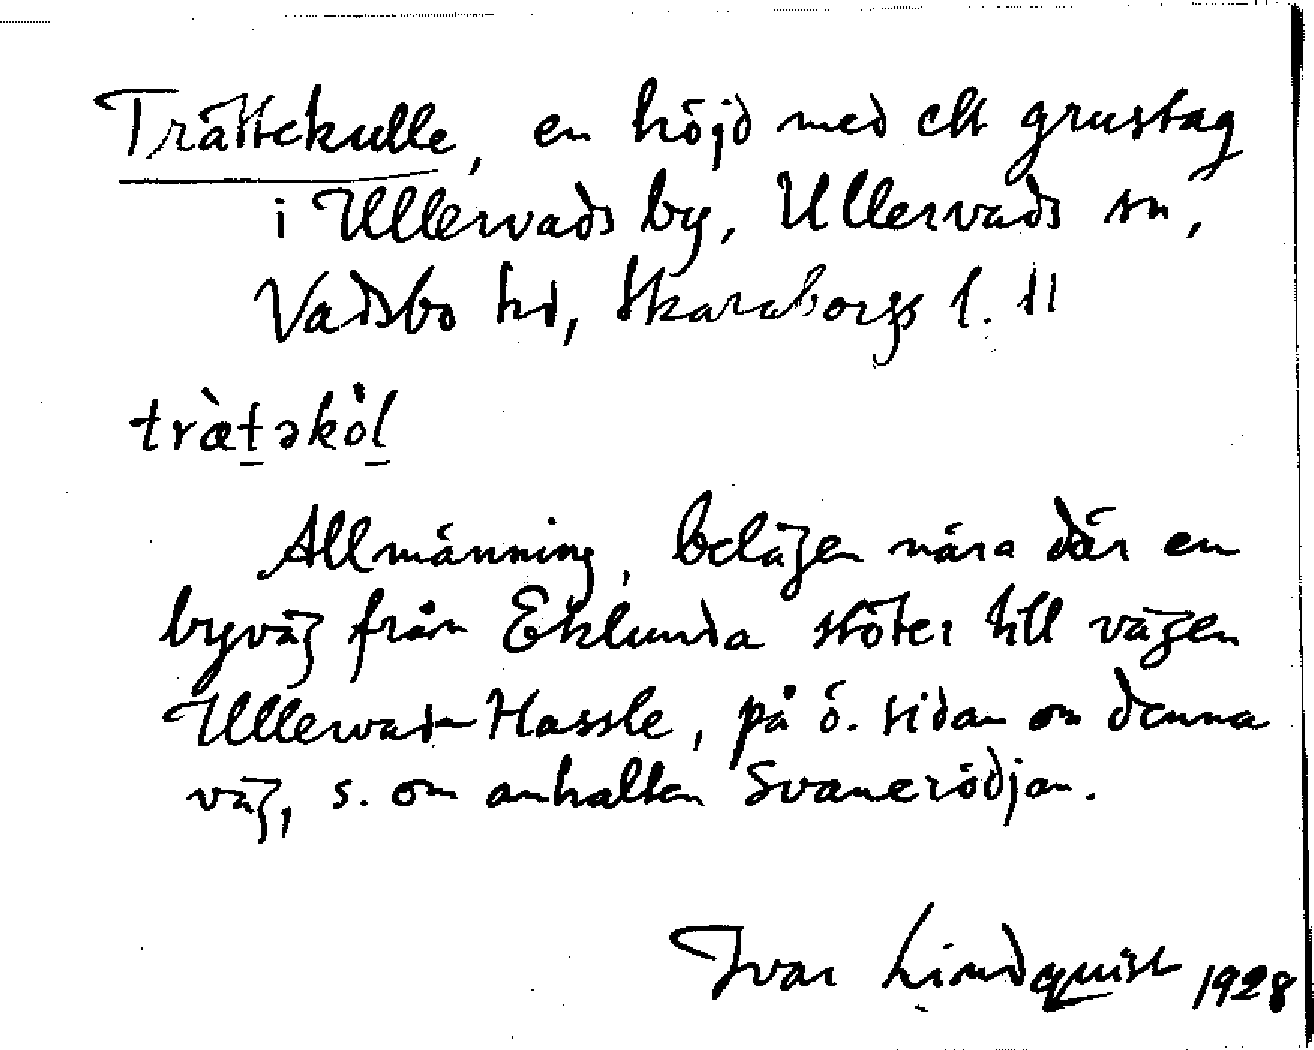 Trättekulle, en höjd med ett grustag
i Ullervads by, Ullervads sn,
Vadsbo hd, Skaraborgs l. 11
trætəkol
Allmänning, belägen nära där en
byväg från Eklunda stöter till vägen
Ullervad-Hassle, på ö. sidan om denna
väg, s. om anhalten Svanerödjan.
Ivar Lindquist 1928